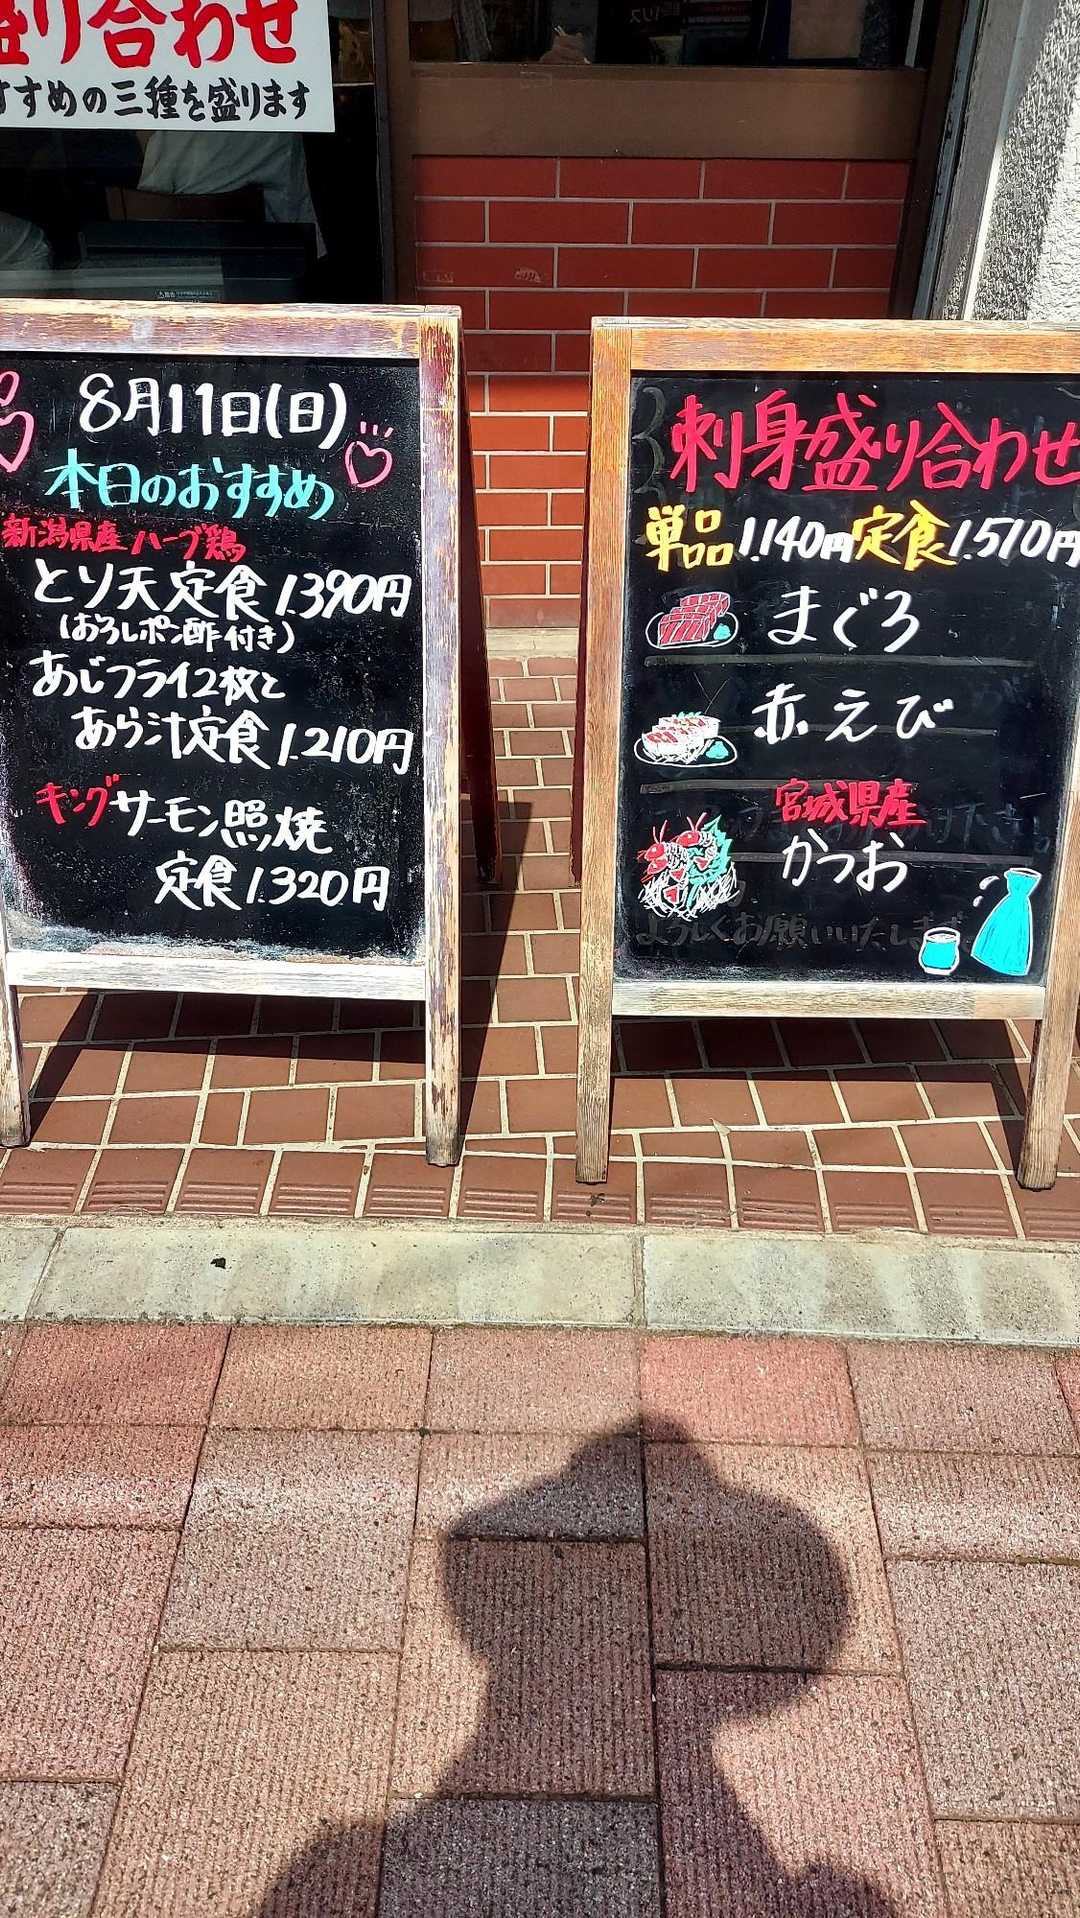 盛り合わせ
すすめの三種を盛ります
8月11日(日)
本日のおすすめ
新潟県産ハーブ鶏
とり天定食 1.390円
(おろしポン酢付き)
あじフライ2枚と
あら汁定食 1.210円
キングサーモン照焼
定食 1.320円
刺身盛り合わせ
単品 1.140円 定食 1.510円
まぐろ
赤えび
宮城県産
かつお
よろしくお願いいたします